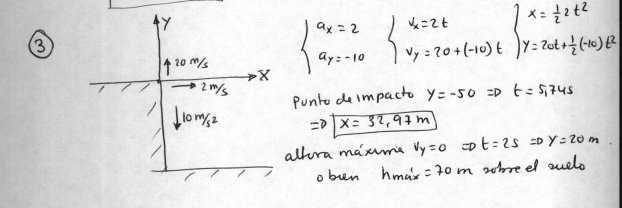 3
Y
20 m/s
X
2 m/s
10 m/s2
ax = 2
ay = -10
Vx = 2t
Vy = 20 + (-10) t
x = 1/2 2 t²
Y = 20t + 1/2 (-10) t²
Punto de impacto Y = -50 => t = 5,74s
=> x = 32,97 m
altura máxima Vy = 0 => t = 2s => Y = 20 m.
o bien hmáx = 70 m sobre el suelo